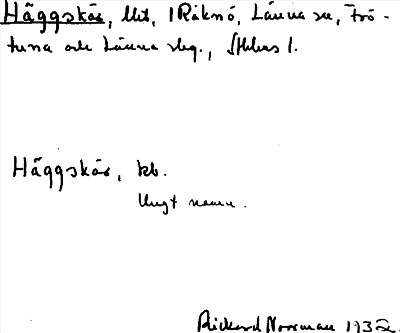 Häggskär, lht, 1 Råknö, Länna sn, Frö-
tuna och Länna skg., Sthlms l.
Häggskär, kb.
Ungt namn.
Rickard Norrman 1932